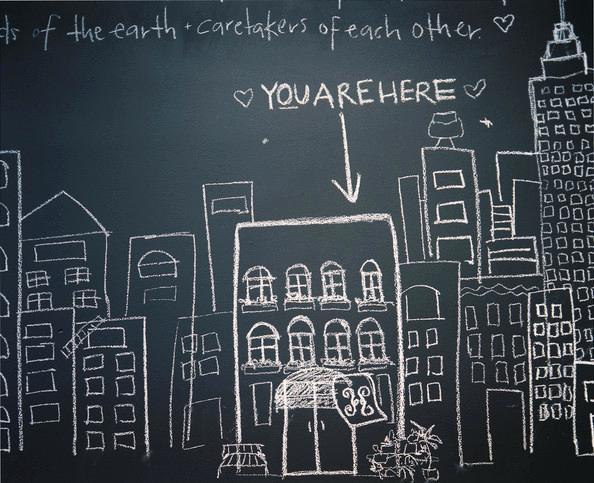 ds of the earth + caretakers of each other. ♡
♡ YOU ARE HERE ♡
H